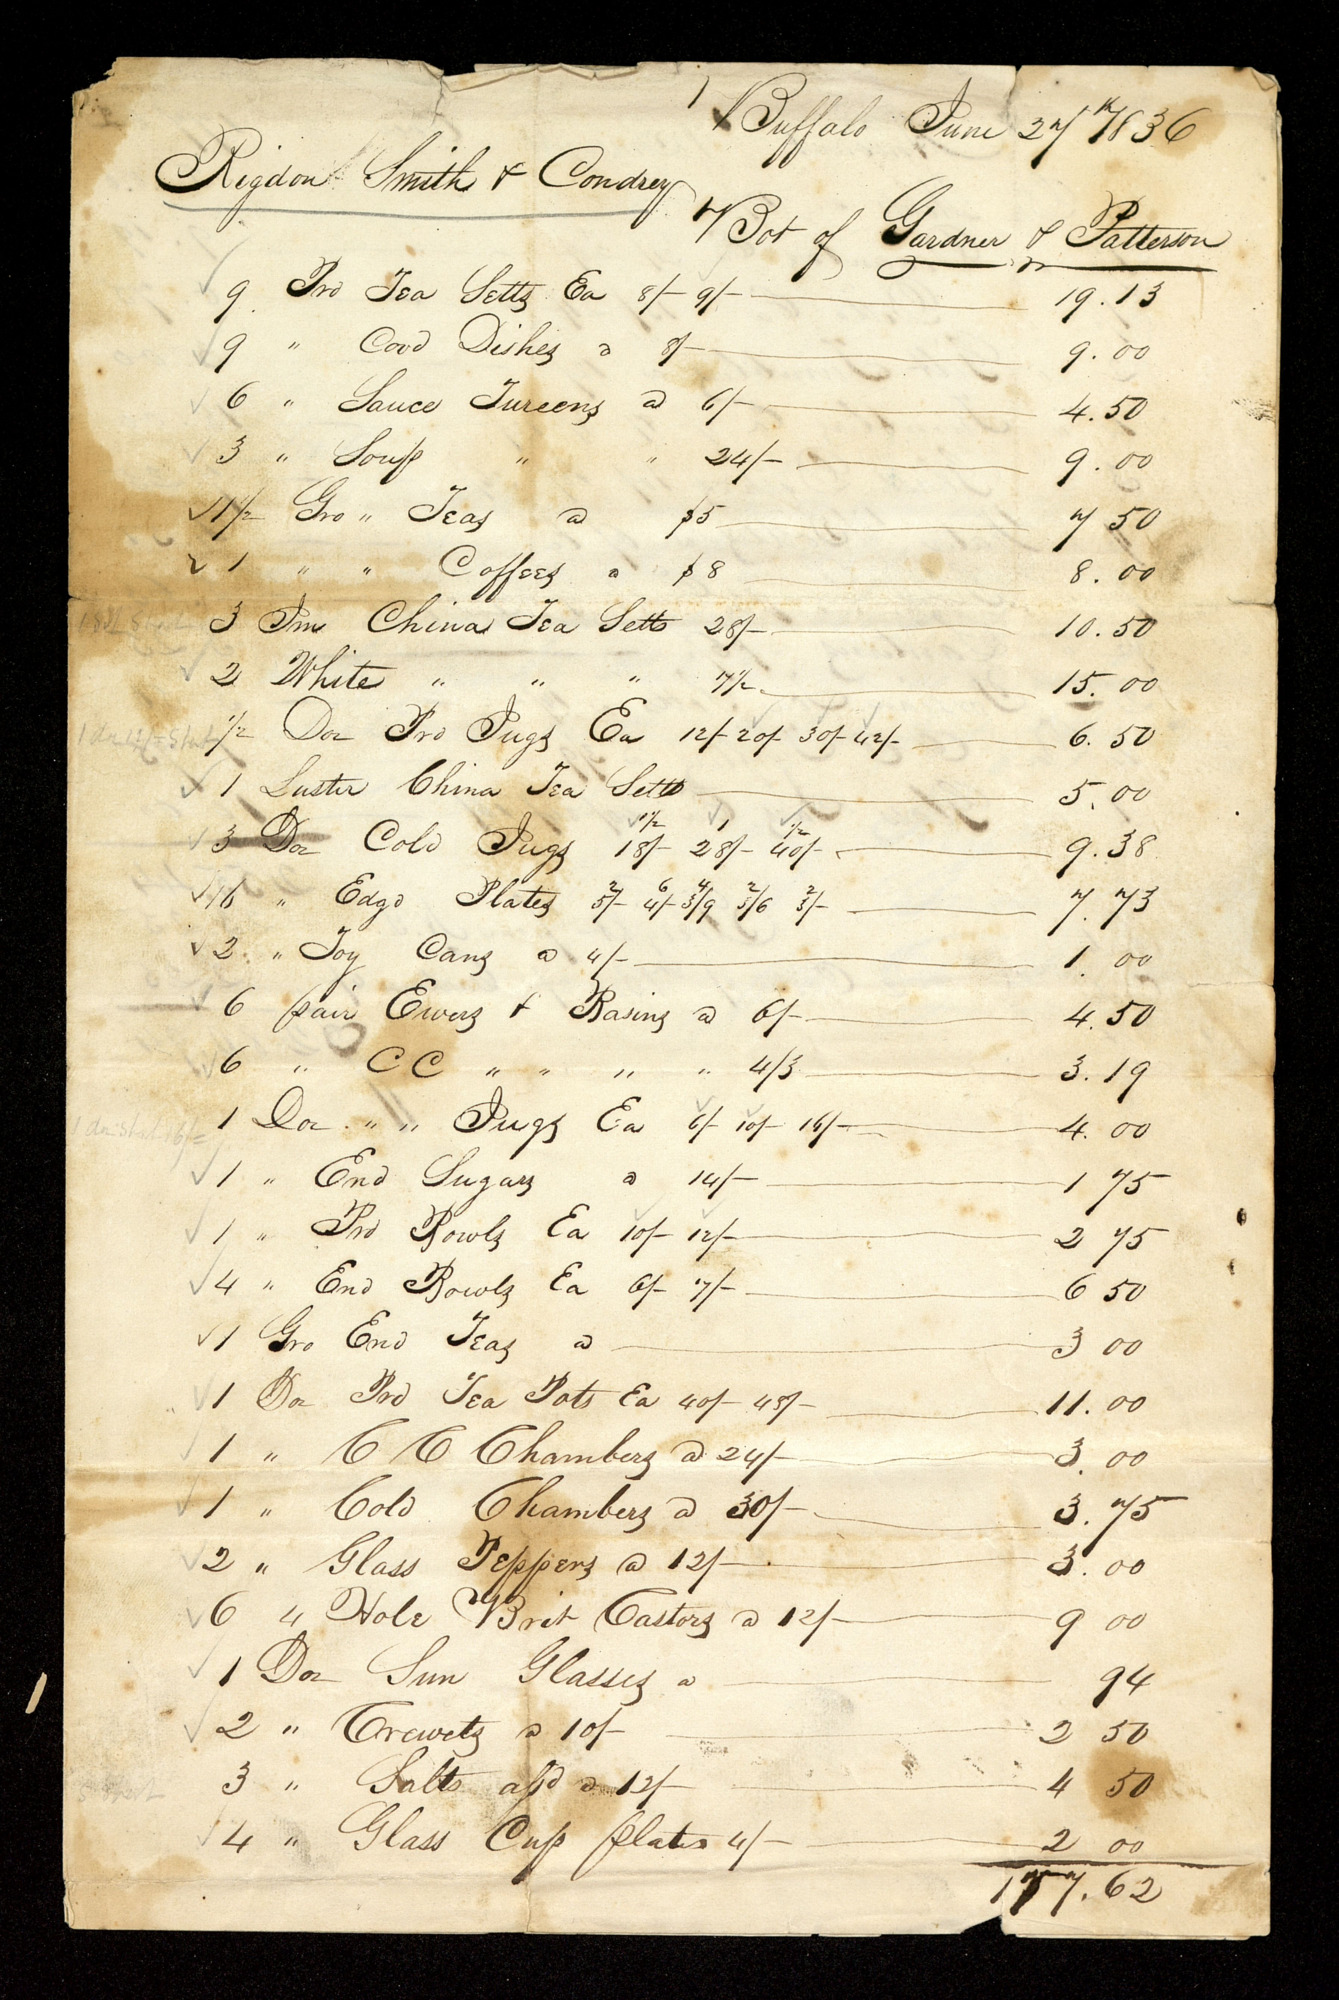 Buffalo June 27th 1836
Rigdon Smith & Condrey
Bot of Gardner & Patterson
9 Prd Tea Setts Ea 8/- 9/- 19.13
9 " Covd Dishes a 8/- 9.00
6 " Sauce Tureens a 6/- 4.50
3 " Soup " " 24/- 9.00
1 1/2 Gro " Teas a $5 7 50
1 " " Coffees a $8 8.00
3 Im China Tea Setts 28/- 10.50
2 White " " " 7 1/2 15.00
1/2 Doz Prd Jugs Ea 12/- 20/- 30/- 42/- 6.50
1 Luster China Tea Setts 5.00
1/2 1 1/2
3 Doz Cold Jugs 18/- 28/- 40/- 9.38
2 6 4 2 2
16 " Edgd Plates 5/- 4/- 3/9 3/6 3/- 7.73
2 " Toy Cans a 4/- 1.00
6 pair Ewers & Basins a 6/- 4.50
6 " CC " " " " 4/3 3.19
1 Doz " " Jugs Ea 6/- 10/- 16/- 4.00
1 " End Sugars a 14/- 1 75
1 " Prd Bowls Ea 10/- 12/- 2 75
4 " End Bowls Ea 6/- 7/- 6 50
1 Gro End Teas a 3 00
1 Doz Prd Tea Pots Ea 40/- 48/- 11.00
1 " C C Chambers a 24/- 3.00
1 " Cold Chambers a 30/- 3.75
2 " Glass Peppers a 12/- 3.00
6 4 Hole Brit Castors a 12/- 9 00
1 Doz Sun Glasses a 94
2 " Crewets a 10/- 2 50
3 " Salts assd a 12/- 4 50
4 " Glass Cup plates 4/- 2 00
177.62